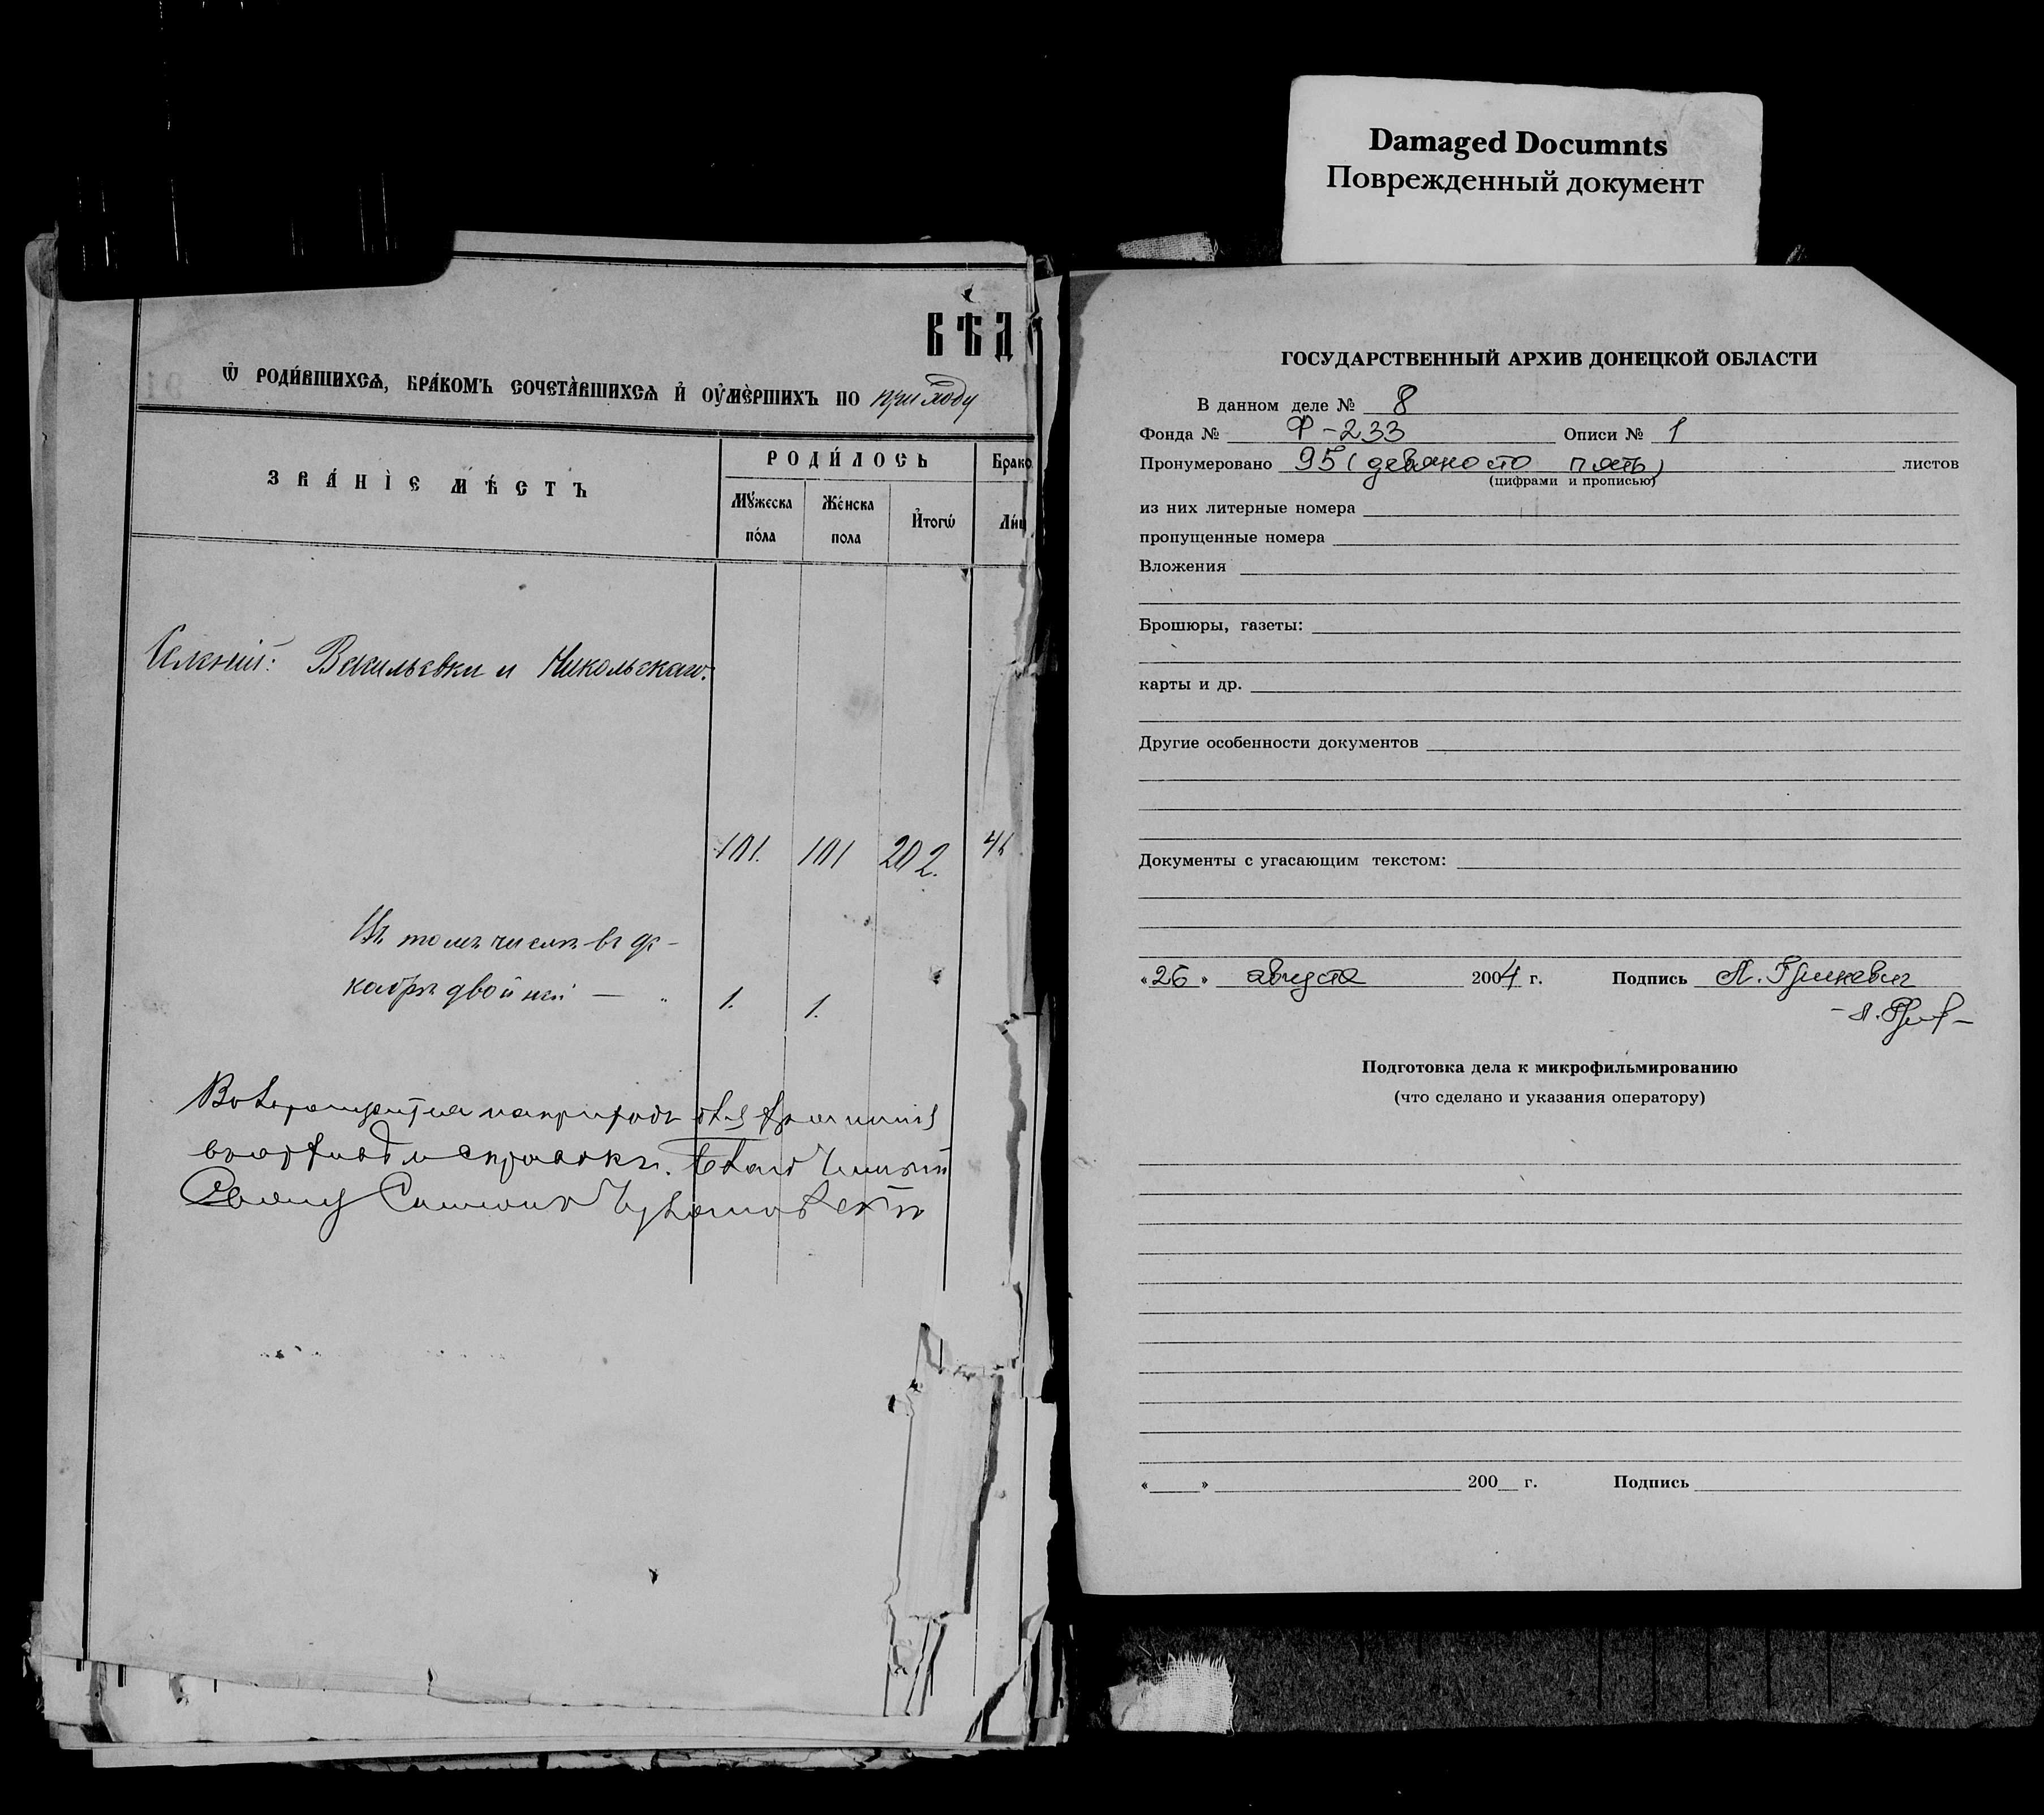 Damaged Documnts
Поврежденный документ
ВѢД
Ѿ РОДИ́ВШИХСѦ, БРА́КОМЪ СОЧЕТА̀ВШИХСѦ И҆ ОУ҆МЕ́РШИХЪ ПО приходу
ЗВА́НІЕ МѢ́СТЪ
РОДИ́ЛОСЬ
Брако
Мꙋ́жеска по́ла
Же́нска пола
И҆тогѡ̀
Ли́ц
Селеній: Васильевки и Никольскаго.
101. 101 202. 41
Въ томъ числѣ въ де-
кабрѣ двойней — „ 1. 1.
ГОСУДАРСТВЕННЫЙ АРХИВ ДОНЕЦКОЙ ОБЛАСТИ
В данном деле № 8
Фонда № Ф-233 Описи № 1
Пронумеровано 95 (девяносто пять) листов
(цифрами и прописью)
из них литерные номера
пропущенные номера
Вложения
Брошюры, газеты:
карты и др.
Другие особенности документов
Документы с угасающим текстом:
«26» августа 2004 г. Подпись
Подготовка дела к микрофильмированию
(что сделано и указания оператору)
«___» 200__ г. Подпись